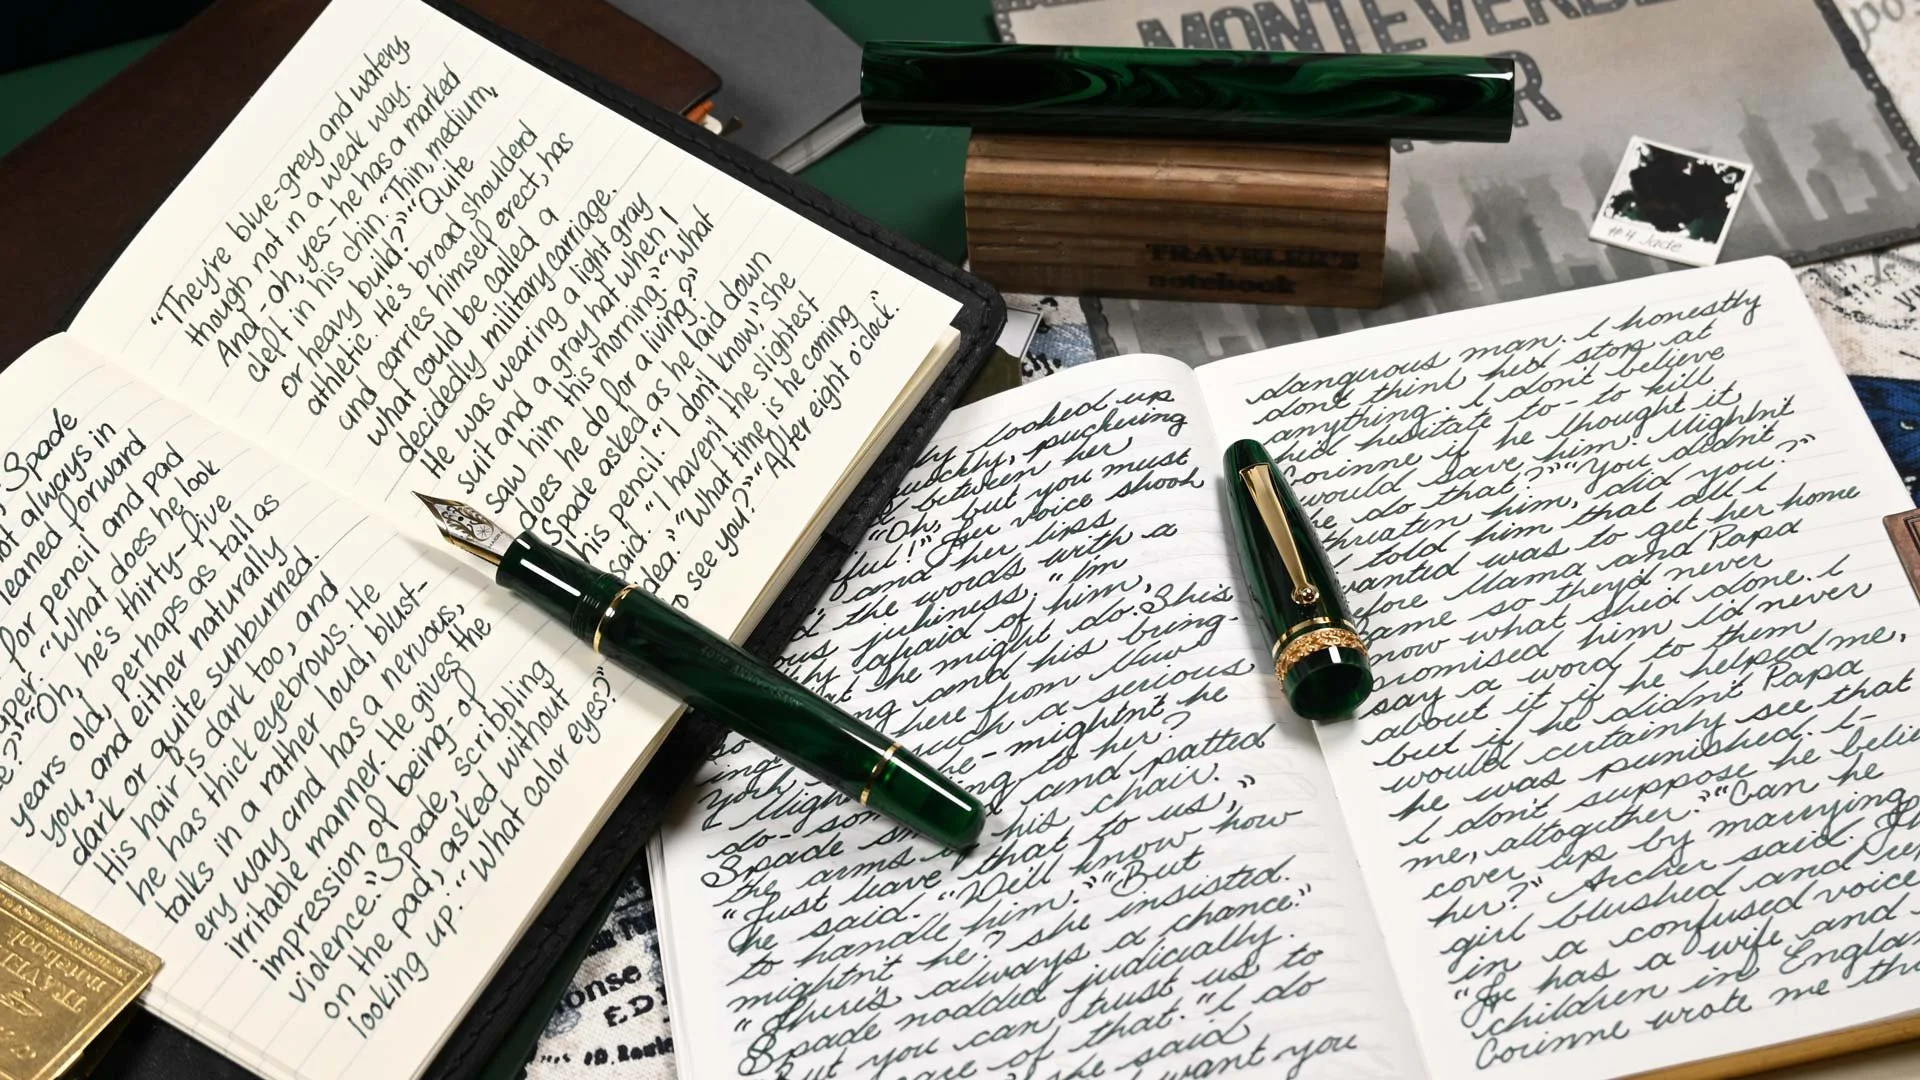 Spade
not always in
leaned forward
for pencil and pad
"What does he look
"Oh, he's thirty-five
years old, perhaps as tall as
you, and either naturally
dark or quite sunburned.
His hair is dark too, and
he has thick eyebrows. He
talks in a rather loud, blust-
ery way and has a nervous,
irritable manner. He gives the
impression of being-of
violence." Spade, scribbling
on the pad, asked without
looking up. "What color eyes?"
"They're blue-grey and watery,
though not in a weak way.
And-oh, yes-he has a marked
cleft in his chin." "Thin, medium,
or heavy build?" "Quite
athletic. He's broad shoulderd
and carries himself erect, has
what could be called a
decidedly military carriage.
He was wearing a light gray
suit and a gray hat when I
saw him this morning." "What
does he do for a living?"
Spade asked as he laid down
his pencil. "I don't know," she
said. "I haven't the slightest
idea." "What time is he coming
to see you?" "After eight o'clock."
MONTEVERDE
TRAVELER'S
notebook
#4 Jade
looked up
quickly, puckering
between her
"Oh, but you must
ful!" Her voice shook
and her lips
the words with a
jerkiness. "I'm
afraid of him,
what he might do. She's
and his bring-
here from New
such a serious
he-mightn't he
to her?
and patted
the arms of his chair.
"Just leave that to us,"
he said. "We'll know how
to handle him." "But
mightn't he? she insisted.
"There's always a chance."
Spade nodded judicially.
"But you can trust us to
care of that." "I do
she said
want you
dangerous man. I honestly
don't think he'd stop at
anything. I don't believe
he'd hesitate to-to kill
Corinne if he thought it
would save him. Mightn't
he do that?" "You didn't
threaten him, did you?"
I told him that all I
wanted was to get her home
before Mama and Papa
came so they'd never
know what she'd done. I
promised him I'd never
say a word to them
about it if he helped me,
but if he didn't Papa
would certainly see that
he was punished. I-
I don't suppose he
me, altogether." "Can he
cover up by marrying
her?" Archer said.
girl blushed and
in a confused voice
"He has a wife and
children in England
Corinne wrote me
TRAVELER'S
notebook